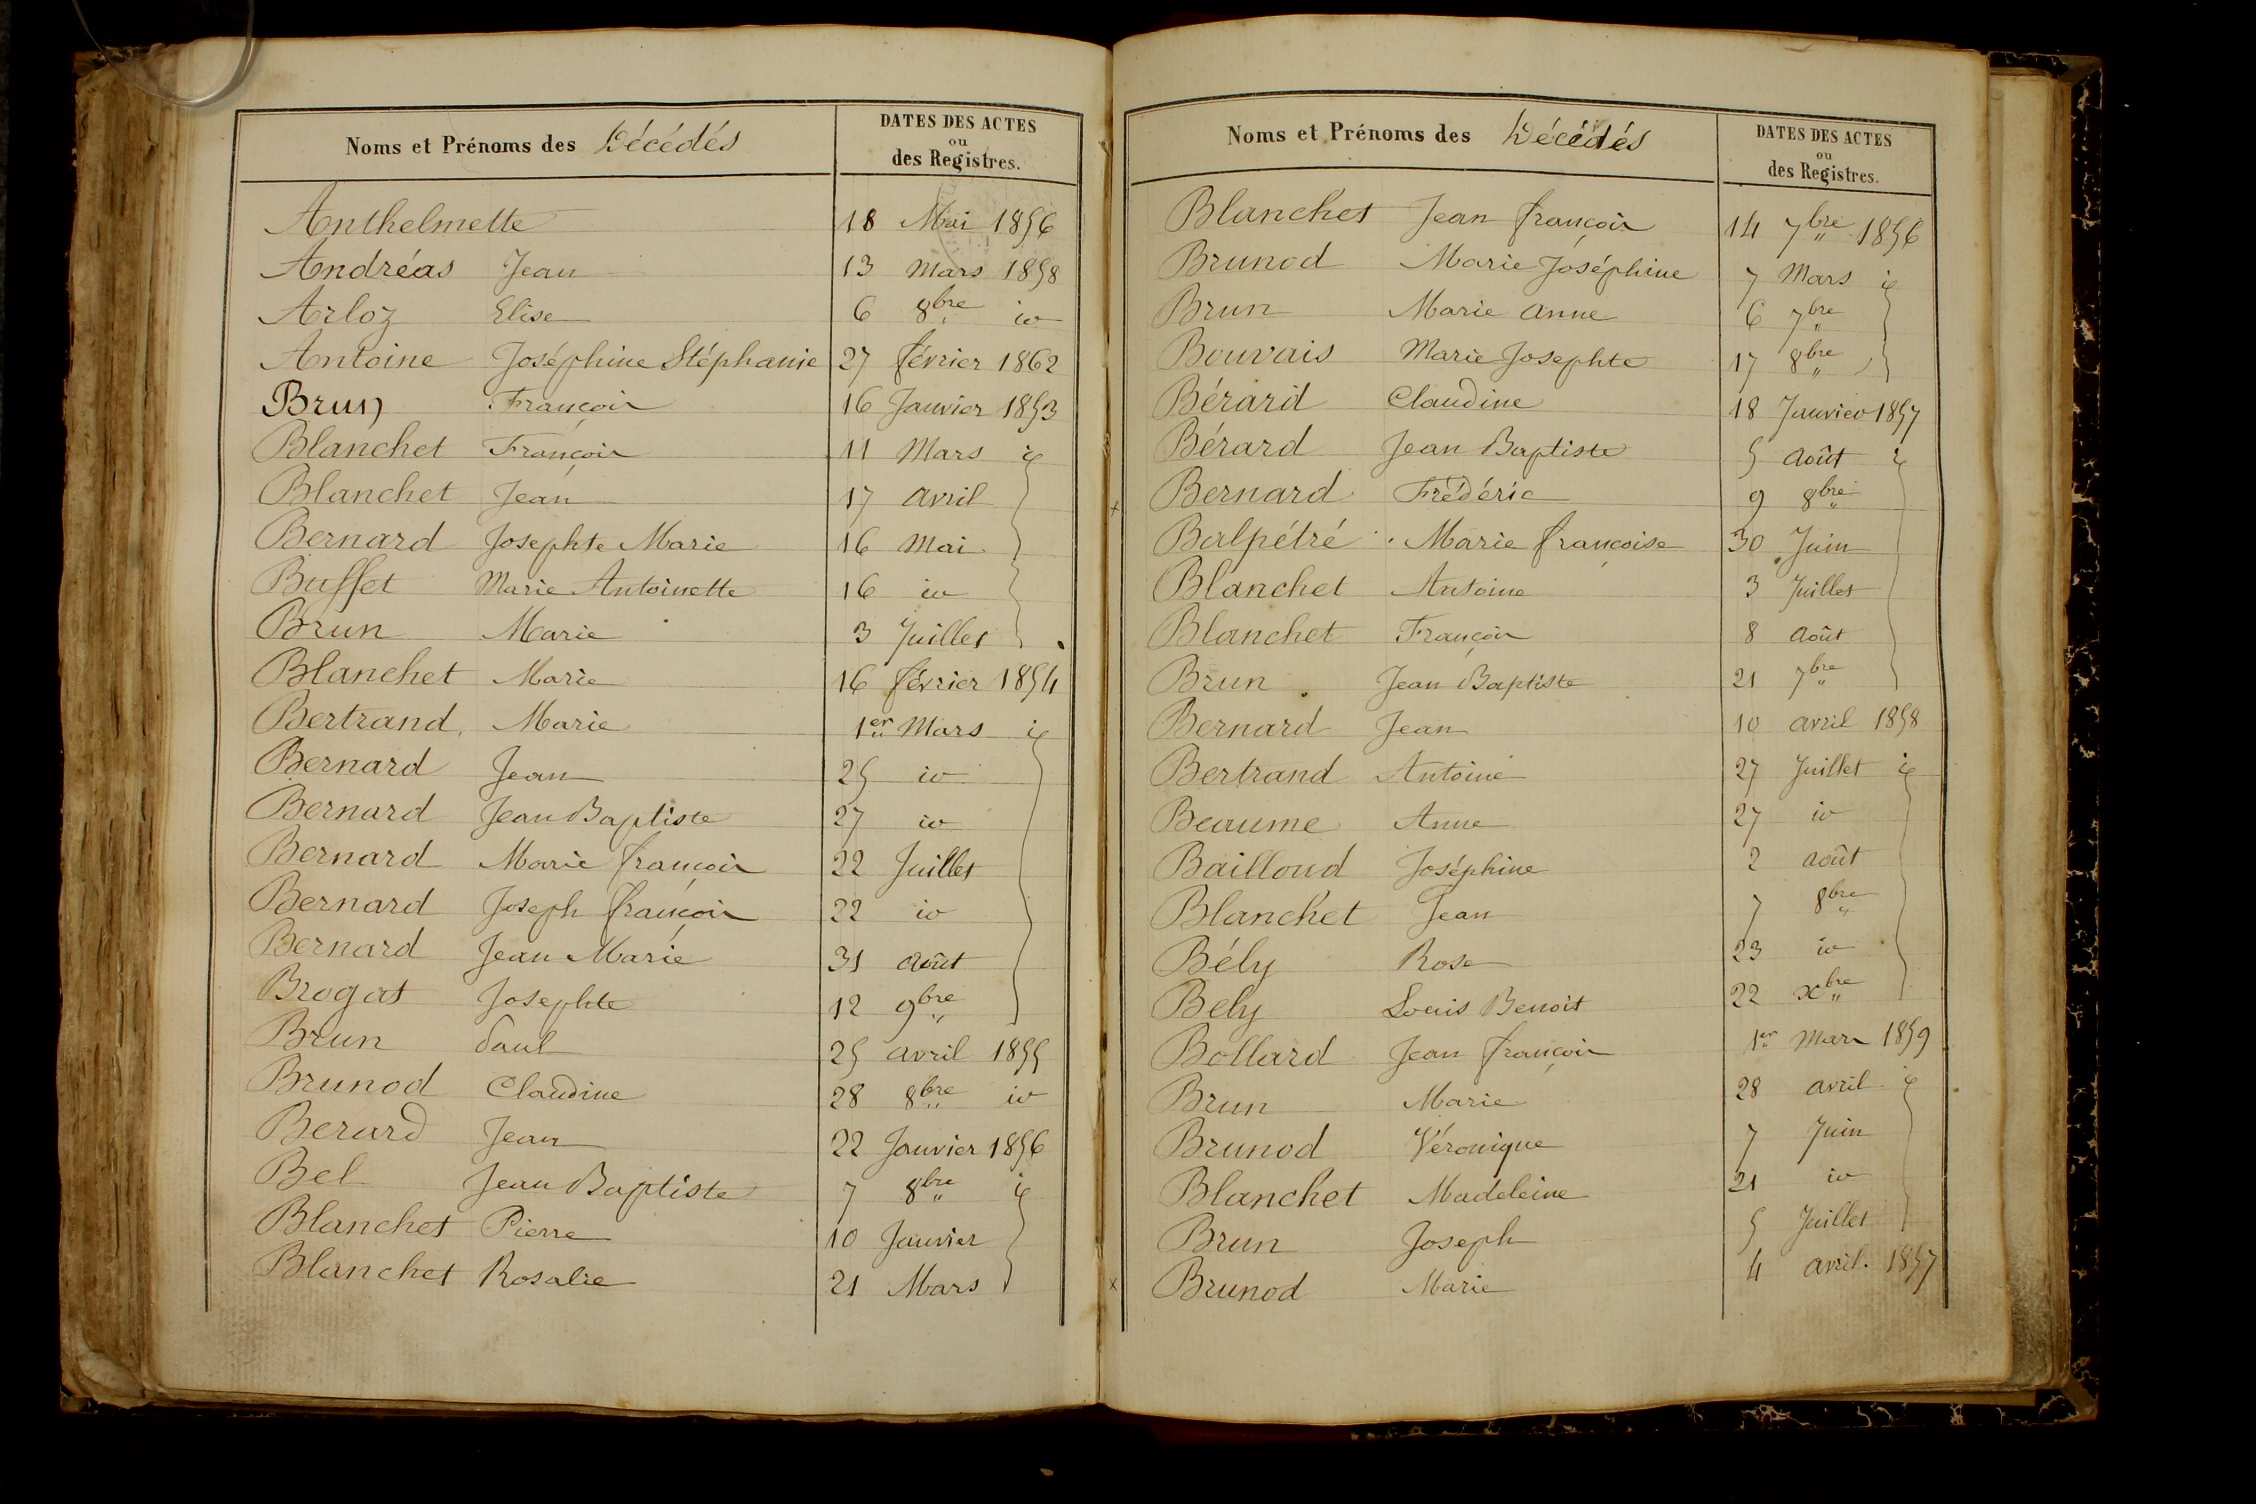 Noms et Prénoms des Décédés
DATES DES ACTES
ou
des Registres.
Anthelmette 18 Mai 1856
Andréas Jean 13 Mars 1858
Arloz Elise 6 8bre id
Antoine Joséphine Stéphanie 27 février 1862
Brun François 16 Janvier 1853
Blanchet François 11 Mars id
Blanchet Jean 17 avril
Bernard Josephte Marie 16 Mai
Buffet Marie Antoinette 16 id
Brun Marie 3 Juillet
Blanchet Marie 16 février 1854
Bertrand Marie 1er Mars id
Bernard Jean 25 id
Bernard Jean Baptiste 27 id
Bernard Marie françois 22 Juillet
Bernard Joseph françois 22 id
Bernard Jean Marie 31 août
Brogat Josephte 12 9bre
Brun Paul 25 avril 1855
Brunod Claudine 28 8bre id
Berard Jean 22 Janvier 1856
Bel Jean Baptiste 7 8bre id
Blanchet Pierre 10 Janvier
Blanchet Rosalie 21 Mars
Noms et Prénoms des Décédés
DATES DES ACTES
ou
des Registres.
Blanchet Jean françois 14 7bre 1856
Brunod Marie Joséphine 7 Mars id
Brun Marie anne 6 7bre
Bouvais Marie Josephte 17 8bre
Bérard Claudine 18 Janvier 1857
Bérard Jean Baptiste 5 août id
Bernard Frédéric 9 8bre
Balpétré Marie françoise 30 Juin
Blanchet Antoine 3 Juillet
Blanchet François 8 août
Brun Jean Baptiste 21 7bre
Bernard Jean 10 avril 1858
Bertrand Antoine 27 Juillet id
Beaume Anne 27 id
Bailloud Joséphine 2 août
Blanchet Jean 7 8bre
Bély Rose 23 id
Bely Louis Benoit 22 xbre
Bollard Jean françois 1er Mars 1859
Brun Marie 28 avril id
Brunod Véronique 7 Juin
Blanchet Madeleine 21 id
Brun Joseph 5 Juillet
Brunod Marie 4 avril. 1857